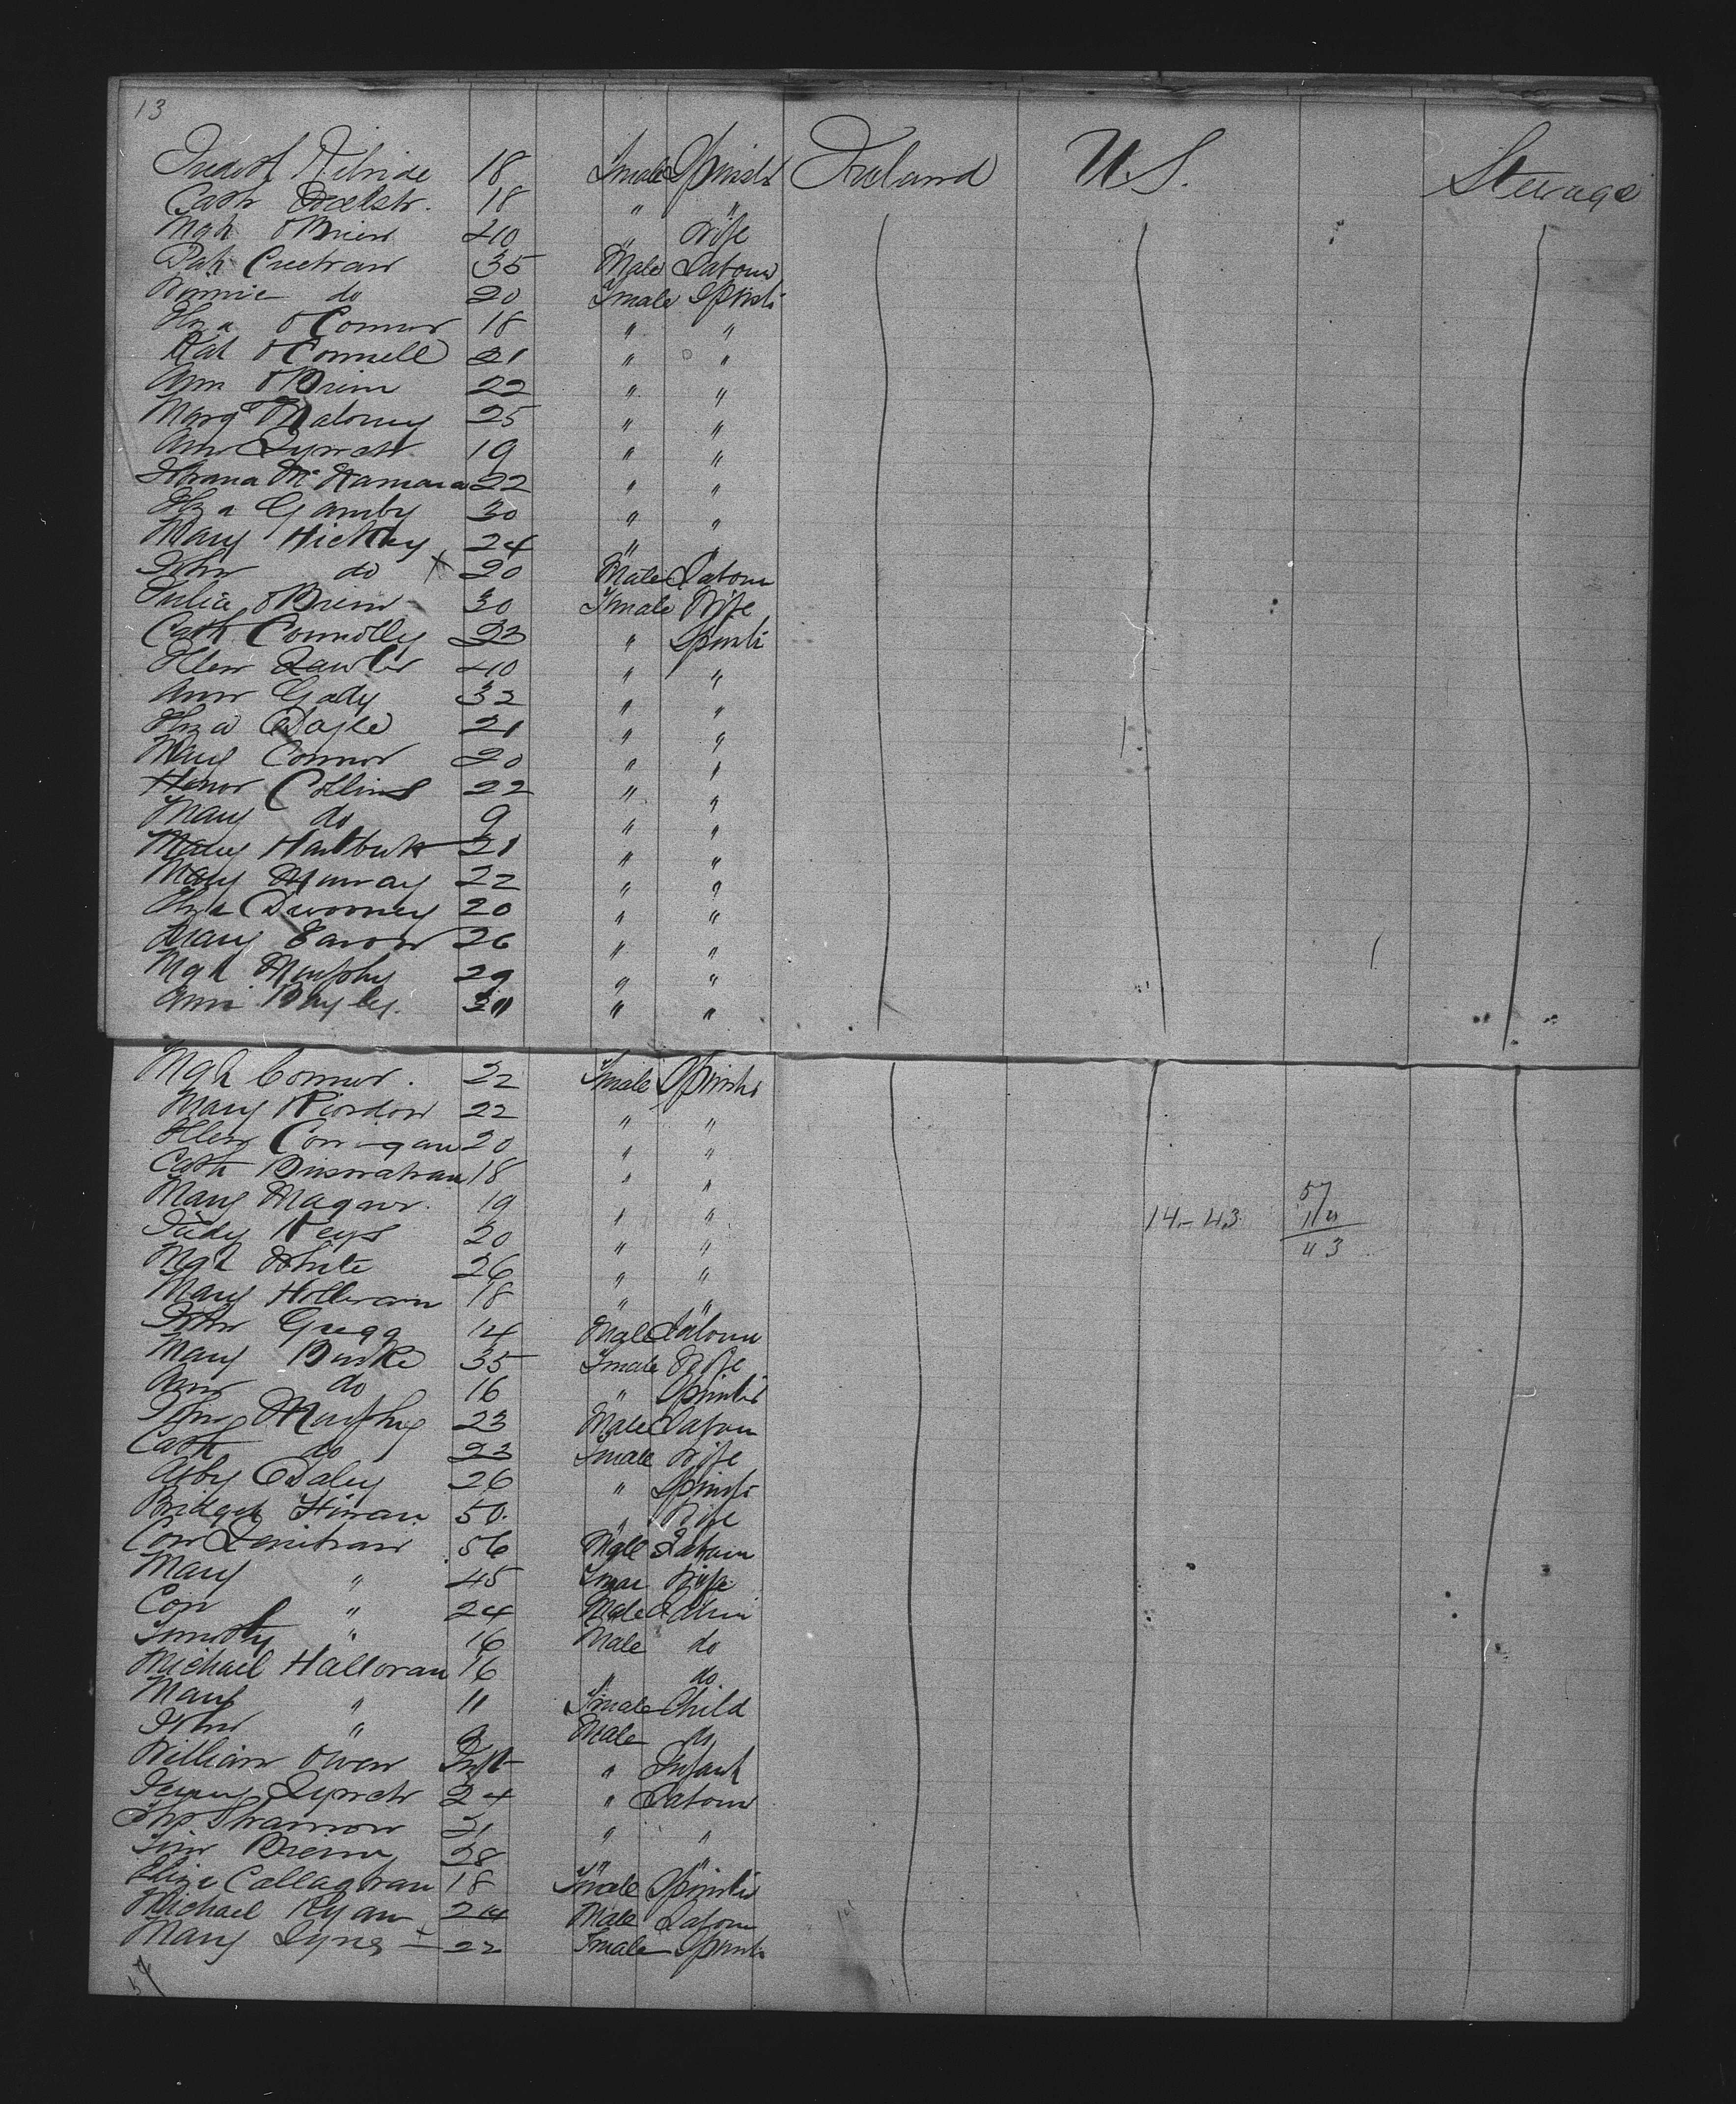 13
Kilride 18 Female Spinster Ireland U.S. Steerage
Cath 18 " "
Mgh O'Brien 40 " Wife
Path Creehan 35 Male Labour
Bonnie do 20 Female Spinst
Eliza O'Connor 18 " "
Kat O'Connell 21 " "
Ann O'Brien 22 " "
Margt Maloney 25 " "
Ann Lynch 19 " "
Johana McNamara 22 " "
Eliza Ganby 30 " "
Mary Hickey 24 " "
John do X 20 Male Labour
Julia O'Brien 30 Female Wife
Cath Connolly 23 " Spinst
Ellen Lawler 40 " "
Ann Gady 32 " "
Eliza Dayle 21 " "
Mary Connor 20 " "
Honor Collins 22 " "
Mary do 9 " "
Mary 21 " "
Mary Murray 22 " "
Eliza Dwooney 20 " "
Mary Earon 26 " "
Mgh Murphy 29 " "
Ann Bayley. 30 " "
Mgh Connor. 22 Female Spinster
Mary Riordon 22 " "
Ellen Corrigan 20 " "
Cath 18 " "
Mary Magner. 19 " "
14-43 57
14
43
Judy Keys 20 " "
Mgh White 26 " "
Mary Holleran 18 " "
John Gregg 14 Male Labour
Mary Burke 35 Female Wife
Ann do 16 " Spinster
John Murphy 23 Male Labour
Cath do 23 Female Wife
Abby Daley 26 " Spinst
Bridget Hinan 50. " Wife
Con Lenihan 56 Male Labour
Mary " 45 Femal Wife
Con " 24 Male Labour
Timothy " 16 Male do
Michael Halloran 16 " do
Mary " 11 Female Child
John " 9 Male do
William Owen Inft " Infant
Lynch 24 " Labour
Thos Shannon 21 " "
Tim Breine 28 " "
Eliza Callaghan 18 Female Spinster
Michael Ryan 24 Male Labour
Mary Lynes 22 Female Spinst
57